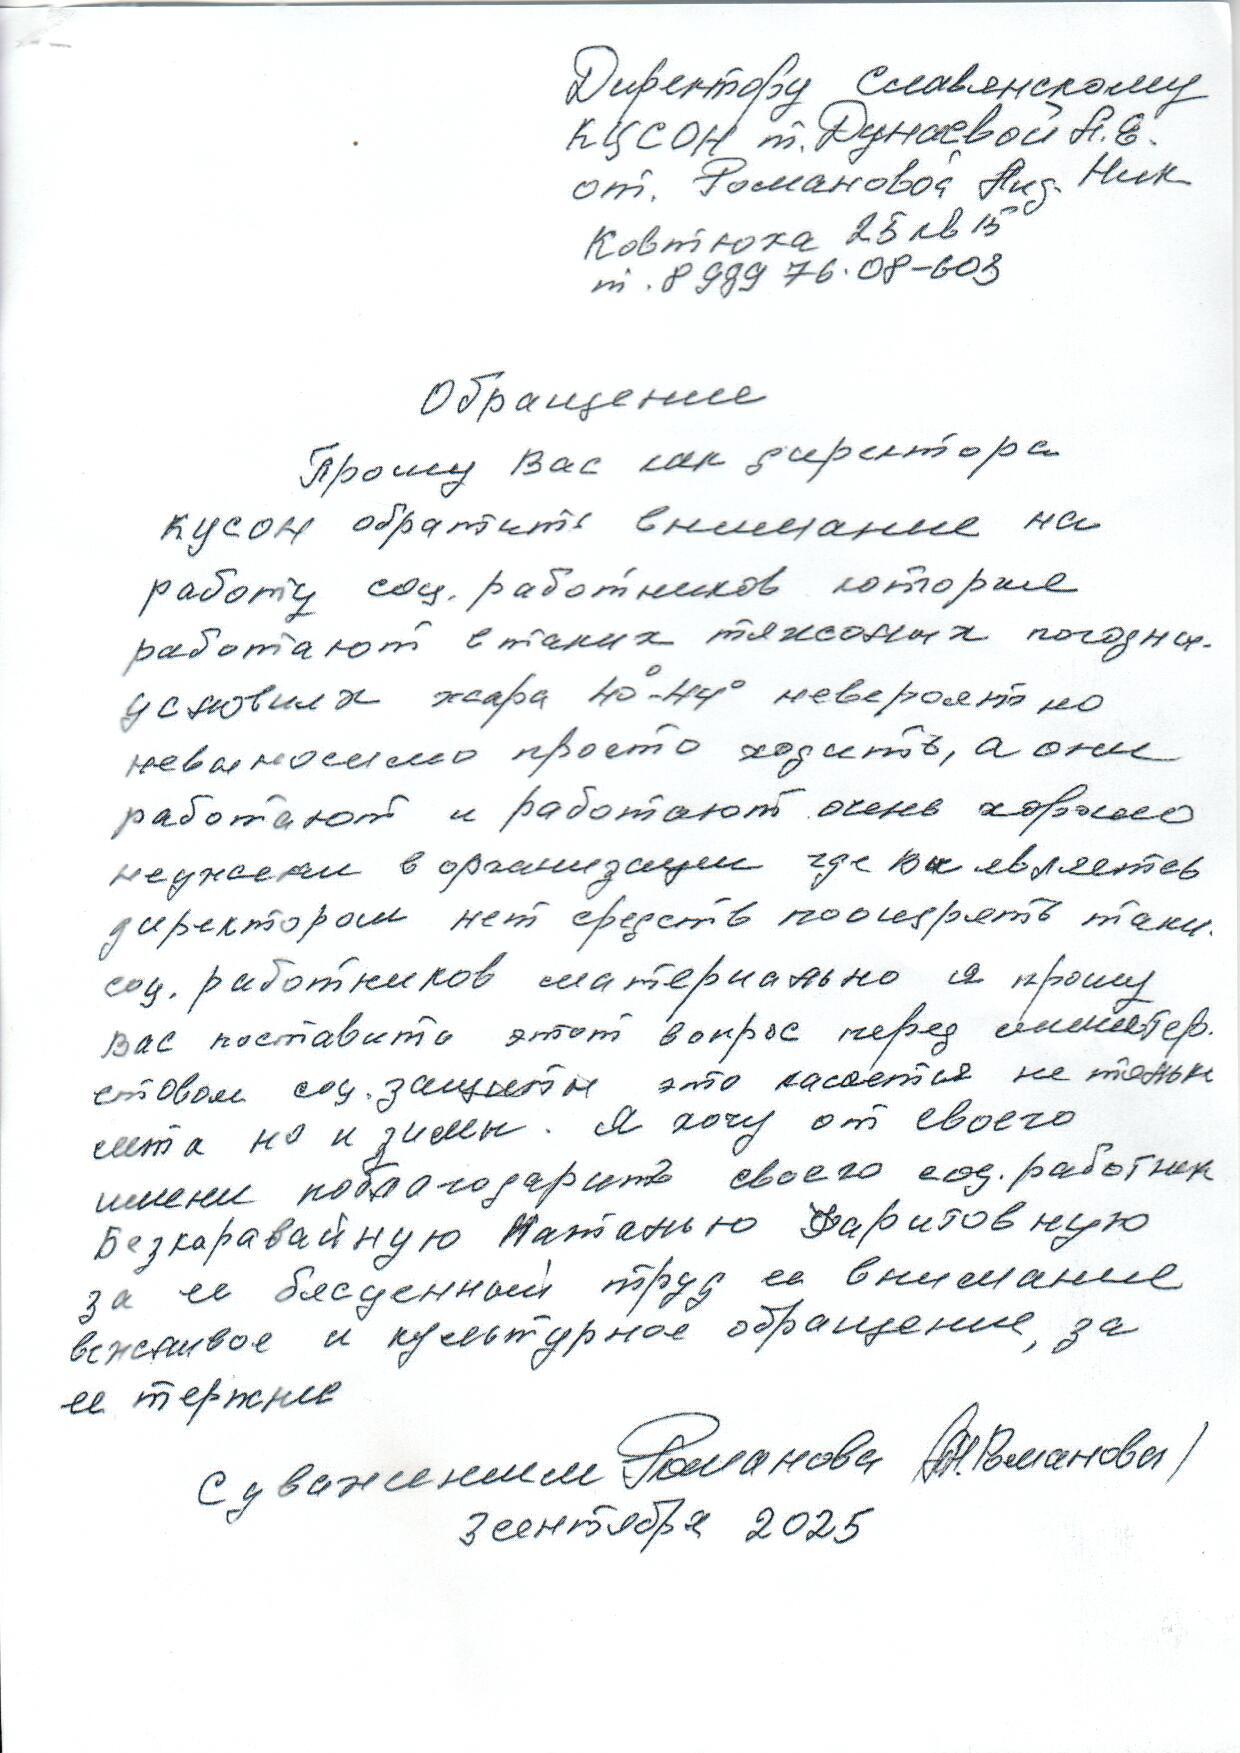 Директору Славянскому
КЦСОН т. Дунаевой Н.Е.
от. Романовой Лид. Ник
Ковтюха 25 кв 15
т. 8 989 76-08-603
Обращение
Прошу Вас как директора
КЦСОН обратить внимание на
работу соц. работников которые
работают в таких тяжелых погодны.
условиях жара 40°-44° невероятно
невыносимо просто ходить, а они
работают и работают очень хорошо
неужели в организации где Вы являетесь
директором нет средств поощрять таки.
соц. работников материально я прошу
Вас поставить этот вопрос перед министер.
ством соц. защиты это касается не тольки
лета но и зимы. Я хочу от своего
имени поблагодарить своего соц. работник
Безкаравайную Наталью Харитовную
за ее бясценный труд ее внимание
вежливое и культурное обращение, за
ее терпение
С уважением Романова /Л.Н. Романова/
3 сентября 2025